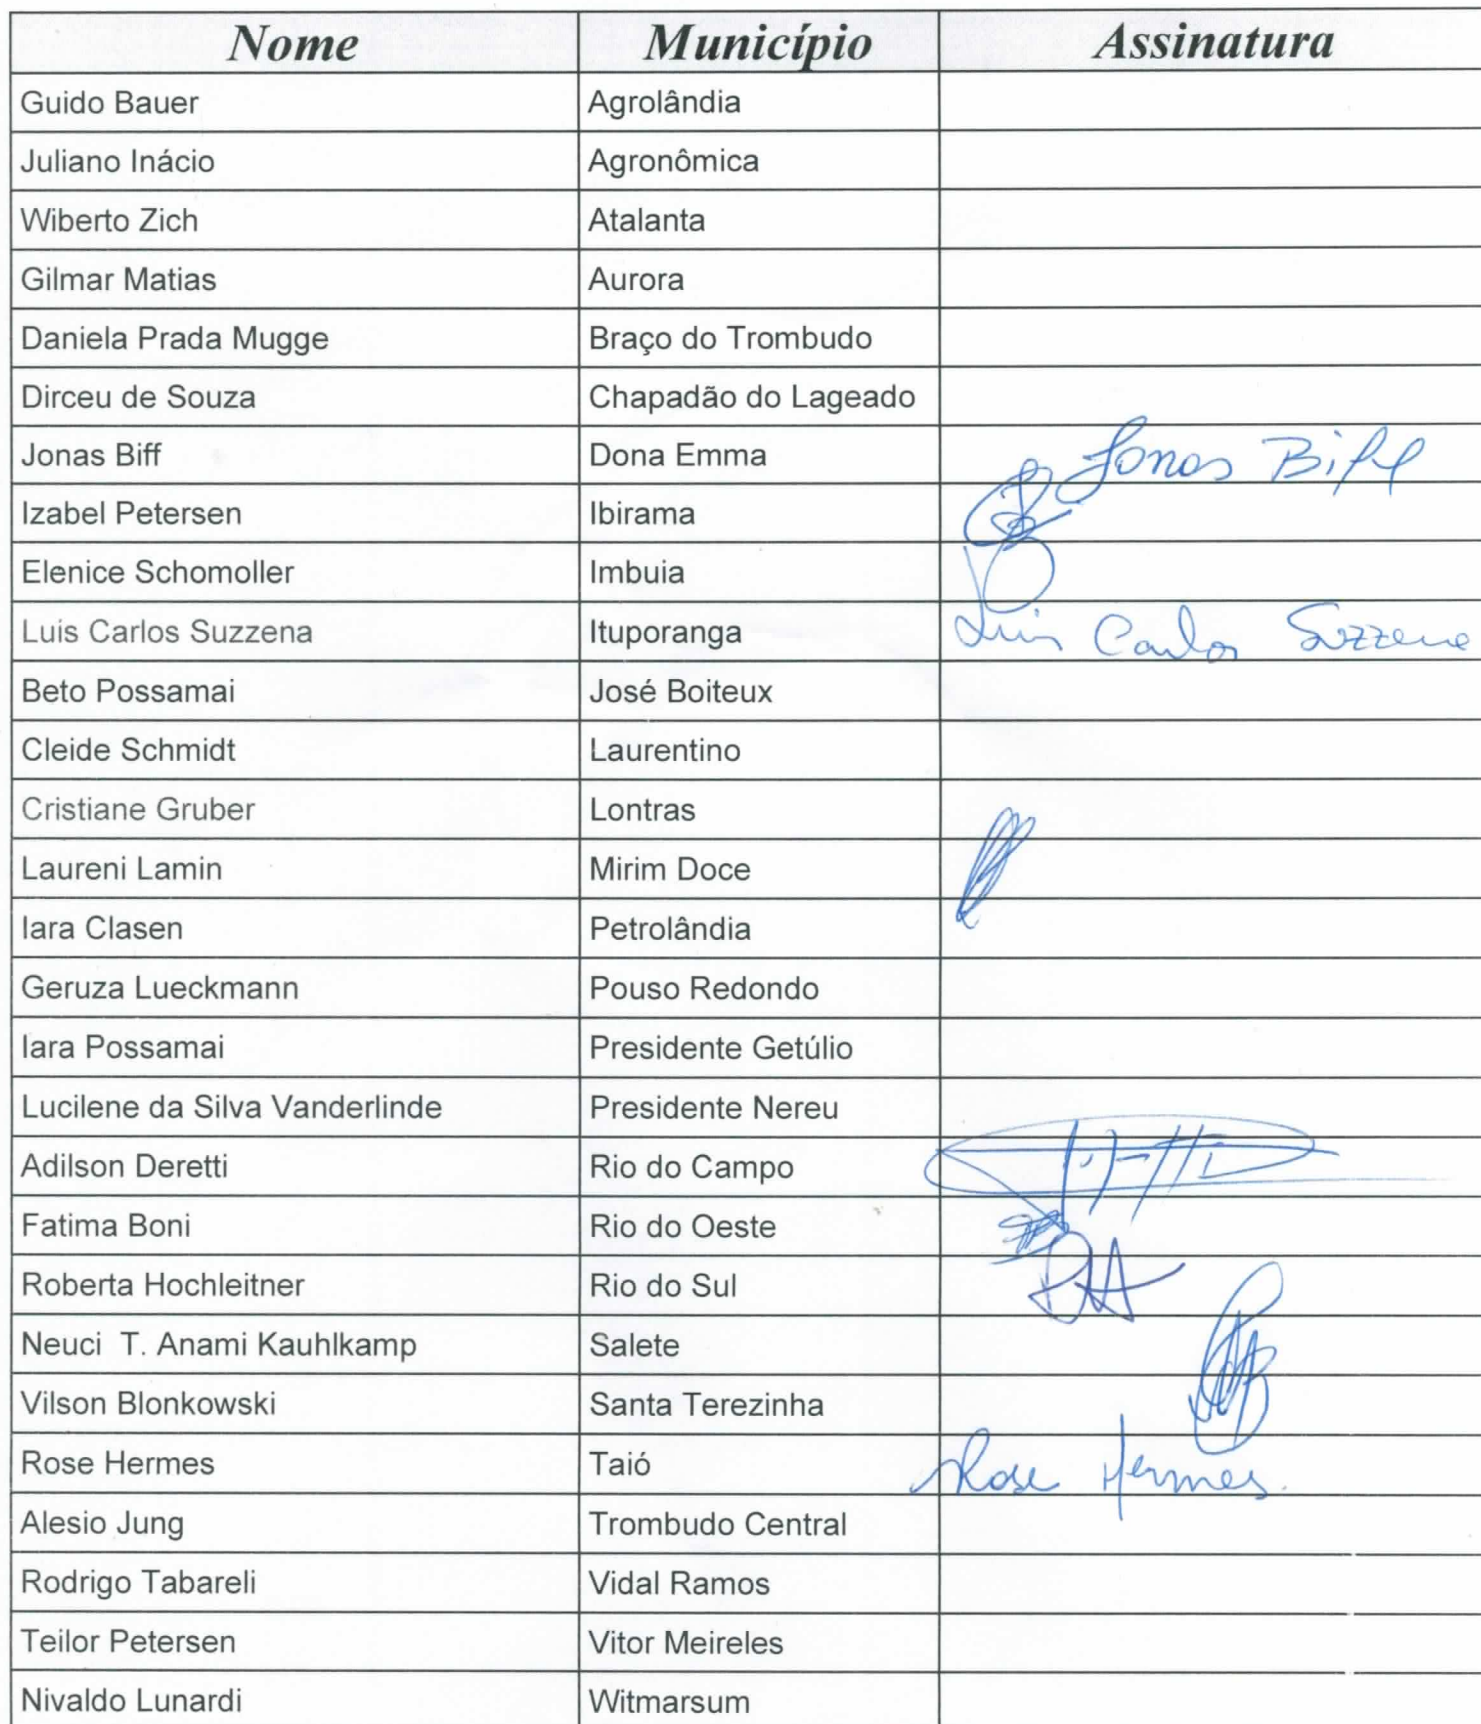 Nome Município Assinatura
Guido Bauer Agrolândia
Juliano Inácio Agronômica
Wiberto Zich Atalanta
Gilmar Matias Aurora
Daniela Prada Mugge Braço do Trombudo
Dirceu de Souza Chapadão do Lageado
Jonas Biff Dona Emma Jonas Biff
Izabel Petersen Ibirama
Elenice Schomoller Imbuia
Luis Carlos Suzzena Ituporanga Luis Carlos Suzzena
Beto Possamai José Boiteux
Cleide Schmidt Laurentino
Cristiane Gruber Lontras
Laureni Lamin Mirim Doce
Iara Clasen Petrolândia
Geruza Lueckmann Pouso Redondo
Iara Possamai Presidente Getúlio
Lucilene da Silva Vanderlinde Presidente Nereu
Adilson Deretti Rio do Campo
Fatima Boni Rio do Oeste
Roberta Hochleitner Rio do Sul
Neuci T. Anami Kauhlkamp Salete
Vilson Blonkowski Santa Terezinha
Rose Hermes Taió Rose Hermes.
Alesio Jung Trombudo Central
Rodrigo Tabareli Vidal Ramos
Teilor Petersen Vitor Meireles
Nivaldo Lunardi Witmarsum